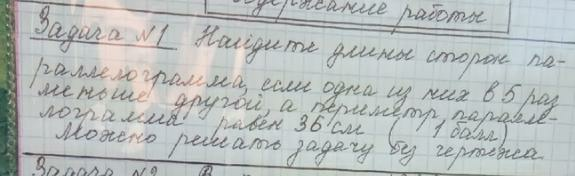 Содержание работы
Задача №1 Найдите длины сторон па-
раллелограмма, если одна из них в 5 раз
меньше другой, а периметр паралле-
лограмма равен 36 см (1 балл)
Можно решать задачу без чертежа.
Задача №2